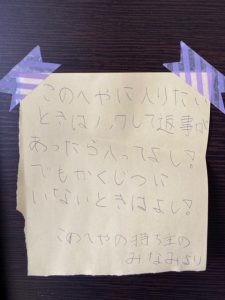 このへやに入りたい
ときはノックして返事が
あったら入ってよし?
でもかくじつに
いないときはよし?
このへやの持ち主の
みなみより